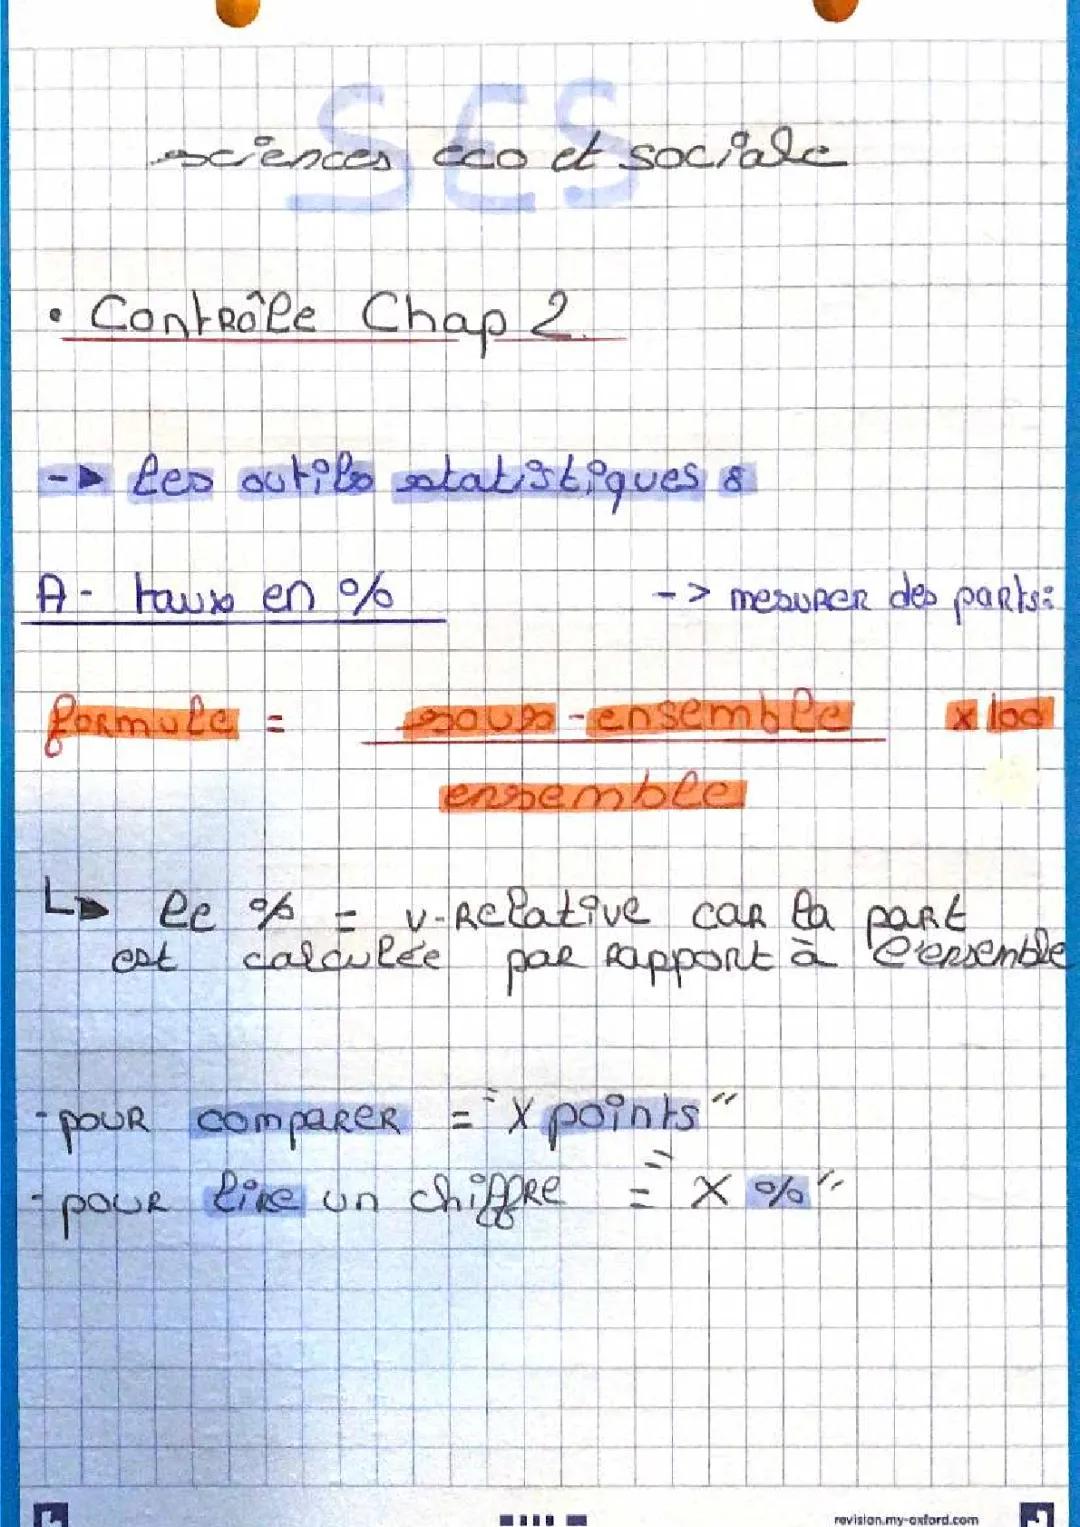 SES
sciences éco et sociale
• Contrôle Chap 2.
-> les outils statistiques :
A - taux en % -> mesurer des parts:
formule = sous-ensemble x 100
ensemble
↳ le % = v-relative car la part
est calculée par rapport à l'ensemble
- pour comparer = "X points"
- pour lire un chiffre = "X %"
revision.my-oxford.com